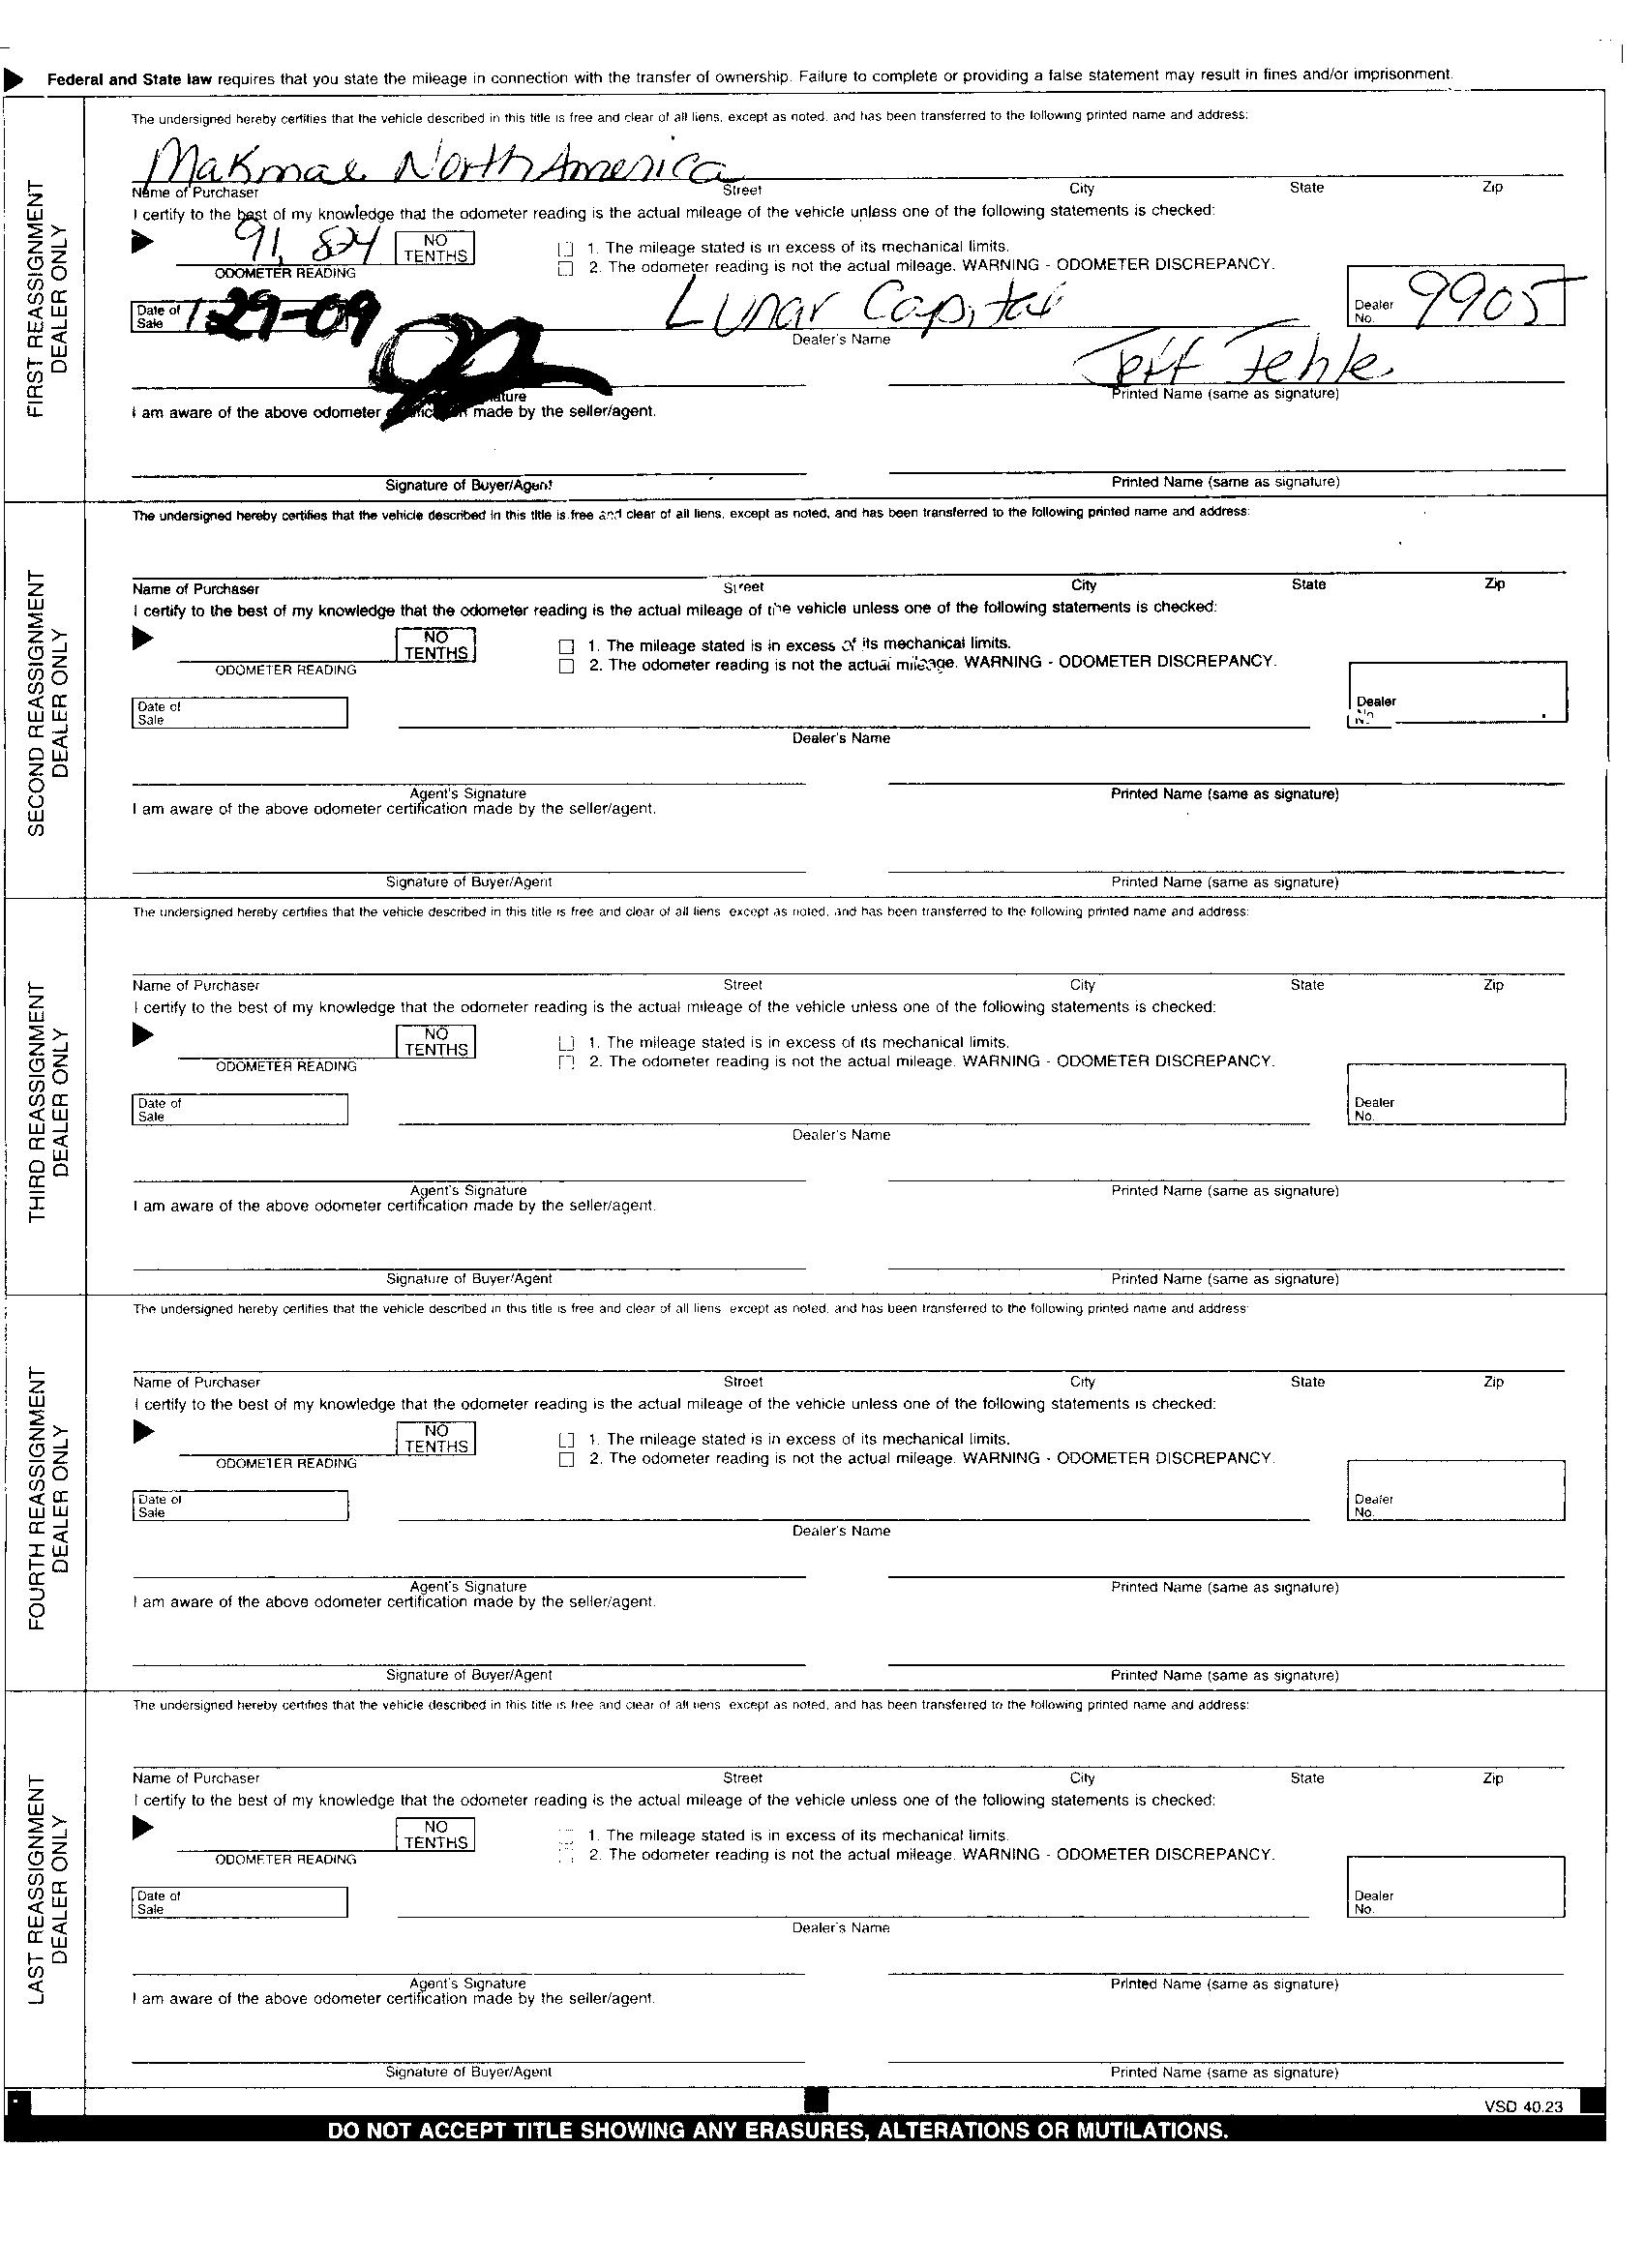 Federal and State law requires that you state the mileage in connection with the transfer of ownership. Failure to complete or providing a false statement may result in fines and/or imprisonment.
FIRST REASSIGNMENT
DEALER ONLY
The undersigned hereby certifies that the vehicle described in this title is free and clear of all liens, except as noted, and has been transferred to the following printed name and address:
North America
Name of Purchaser Street City State Zip
I certify to the best of my knowledge that the odometer reading is the actual mileage of the vehicle unless one of the following statements is checked:
91,824 NO TENTHS
ODOMETER READING
1. The mileage stated is in excess of its mechanical limits.
2. The odometer reading is not the actual mileage. WARNING - ODOMETER DISCREPANCY.
Date of Sale 1-29-09 Lunar Capital Dealer No. 9905
Dealer's Name
Printed Name (same as signature)
I am aware of the above odometer made by the seller/agent.
Signature of Buyer/Agent Printed Name (same as signature)
SECOND REASSIGNMENT
DEALER ONLY
The undersigned hereby certifies that the vehicle described in this title is free and clear of all liens, except as noted, and has been transferred to the following printed name and address:
Name of Purchaser Street City State Zip
I certify to the best of my knowledge that the odometer reading is the actual mileage of the vehicle unless one of the following statements is checked:
NO TENTHS
ODOMETER READING
1. The mileage stated is in excess of its mechanical limits.
2. The odometer reading is not the actual mileage. WARNING - ODOMETER DISCREPANCY.
Date of Sale Dealer No.
Dealer's Name
Agent's Signature Printed Name (same as signature)
I am aware of the above odometer certification made by the seller/agent.
Signature of Buyer/Agent Printed Name (same as signature)
THIRD REASSIGNMENT
DEALER ONLY
The undersigned hereby certifies that the vehicle described in this title is free and clear of all liens except as noted, and has been transferred to the following printed name and address:
Name of Purchaser Street City State Zip
I certify to the best of my knowledge that the odometer reading is the actual mileage of the vehicle unless one of the following statements is checked:
NO TENTHS
ODOMETER READING
1. The mileage stated is in excess of its mechanical limits.
2. The odometer reading is not the actual mileage. WARNING - ODOMETER DISCREPANCY.
Date of Sale Dealer No.
Dealer's Name
Agent's Signature Printed Name (same as signature)
I am aware of the above odometer certification made by the seller/agent.
Signature of Buyer/Agent Printed Name (same as signature)
FOURTH REASSIGNMENT
DEALER ONLY
The undersigned hereby certifies that the vehicle described in this title is free and clear of all liens except as noted, and has been transferred to the following printed name and address:
Name of Purchaser Street City State Zip
I certify to the best of my knowledge that the odometer reading is the actual mileage of the vehicle unless one of the following statements is checked:
NO TENTHS
ODOMETER READING
1. The mileage stated is in excess of its mechanical limits.
2. The odometer reading is not the actual mileage. WARNING - ODOMETER DISCREPANCY.
Date of Sale Dealer No.
Dealer's Name
Agent's Signature Printed Name (same as signature)
I am aware of the above odometer certification made by the seller/agent.
Signature of Buyer/Agent Printed Name (same as signature)
LAST REASSIGNMENT
DEALER ONLY
The undersigned hereby certifies that the vehicle described in this title is free and clear of all liens except as noted, and has been transferred to the following printed name and address:
Name of Purchaser Street City State Zip
I certify to the best of my knowledge that the odometer reading is the actual mileage of the vehicle unless one of the following statements is checked:
NO TENTHS
ODOMETER READING
1. The mileage stated is in excess of its mechanical limits.
2. The odometer reading is not the actual mileage. WARNING - ODOMETER DISCREPANCY.
Date of Sale Dealer No.
Dealer's Name
Agent's Signature Printed Name (same as signature)
I am aware of the above odometer certification made by the seller/agent.
Signature of Buyer/Agent Printed Name (same as signature)
VSD 40.23
DO NOT ACCEPT TITLE SHOWING ANY ERASURES, ALTERATIONS OR MUTILATIONS.